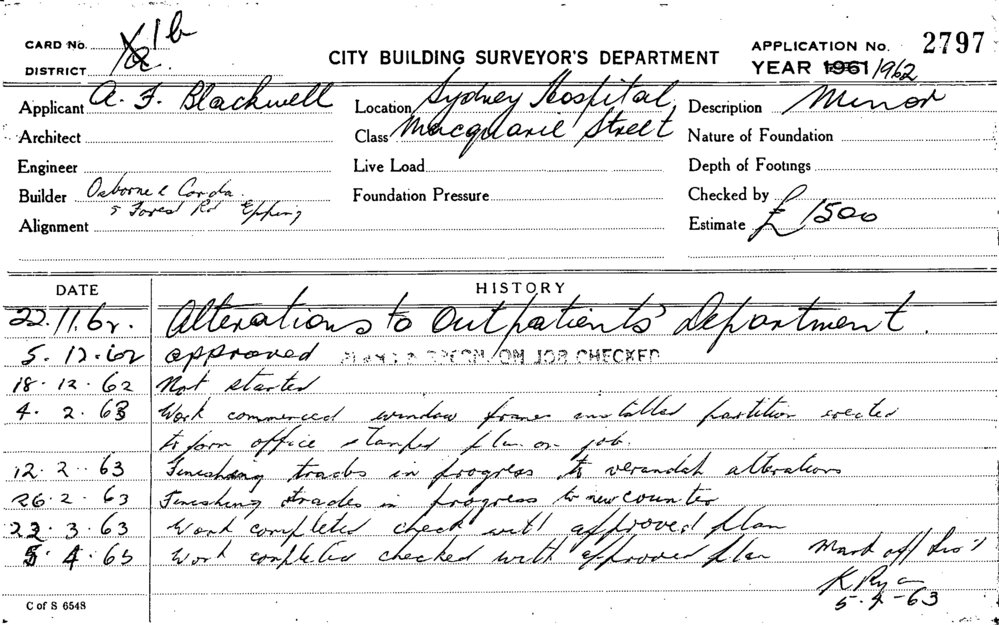 CARD No. 1b
CITY BUILDING SURVEYOR'S DEPARTMENT
APPLICATION No. 2797
DISTRICT
YEAR 1961/1962
Applicant A. F. Blackwell
Location Sydney Hospital,
Description Minor
Architect
Class Macquarie Street
Nature of Foundation
Engineer
Live Load
Depth of Footings
Builder Osborne & Corda.
5 Forest Rd Epping
Foundation Pressure
Checked by
Alignment
Estimate £1500
DATE
HISTORY
22.11.62. Alterations to Outpatients' Department.
5.12.62 approved PLANS & SPECON. ON JOB CHECKED
18.12.62 Not started
4.2.63 Work commenced window frames installed partition erected
to form office stamped plan on job.
12.2.63 Finishing trades in progress to verandah alterations
26.2.63 Finishing trades in progress to new counter
22.3.63 Work completed check with approved plan
5.4.63 Work completed checked with approved plan Mark off
K Ryan
5.4-63
C of S 6548